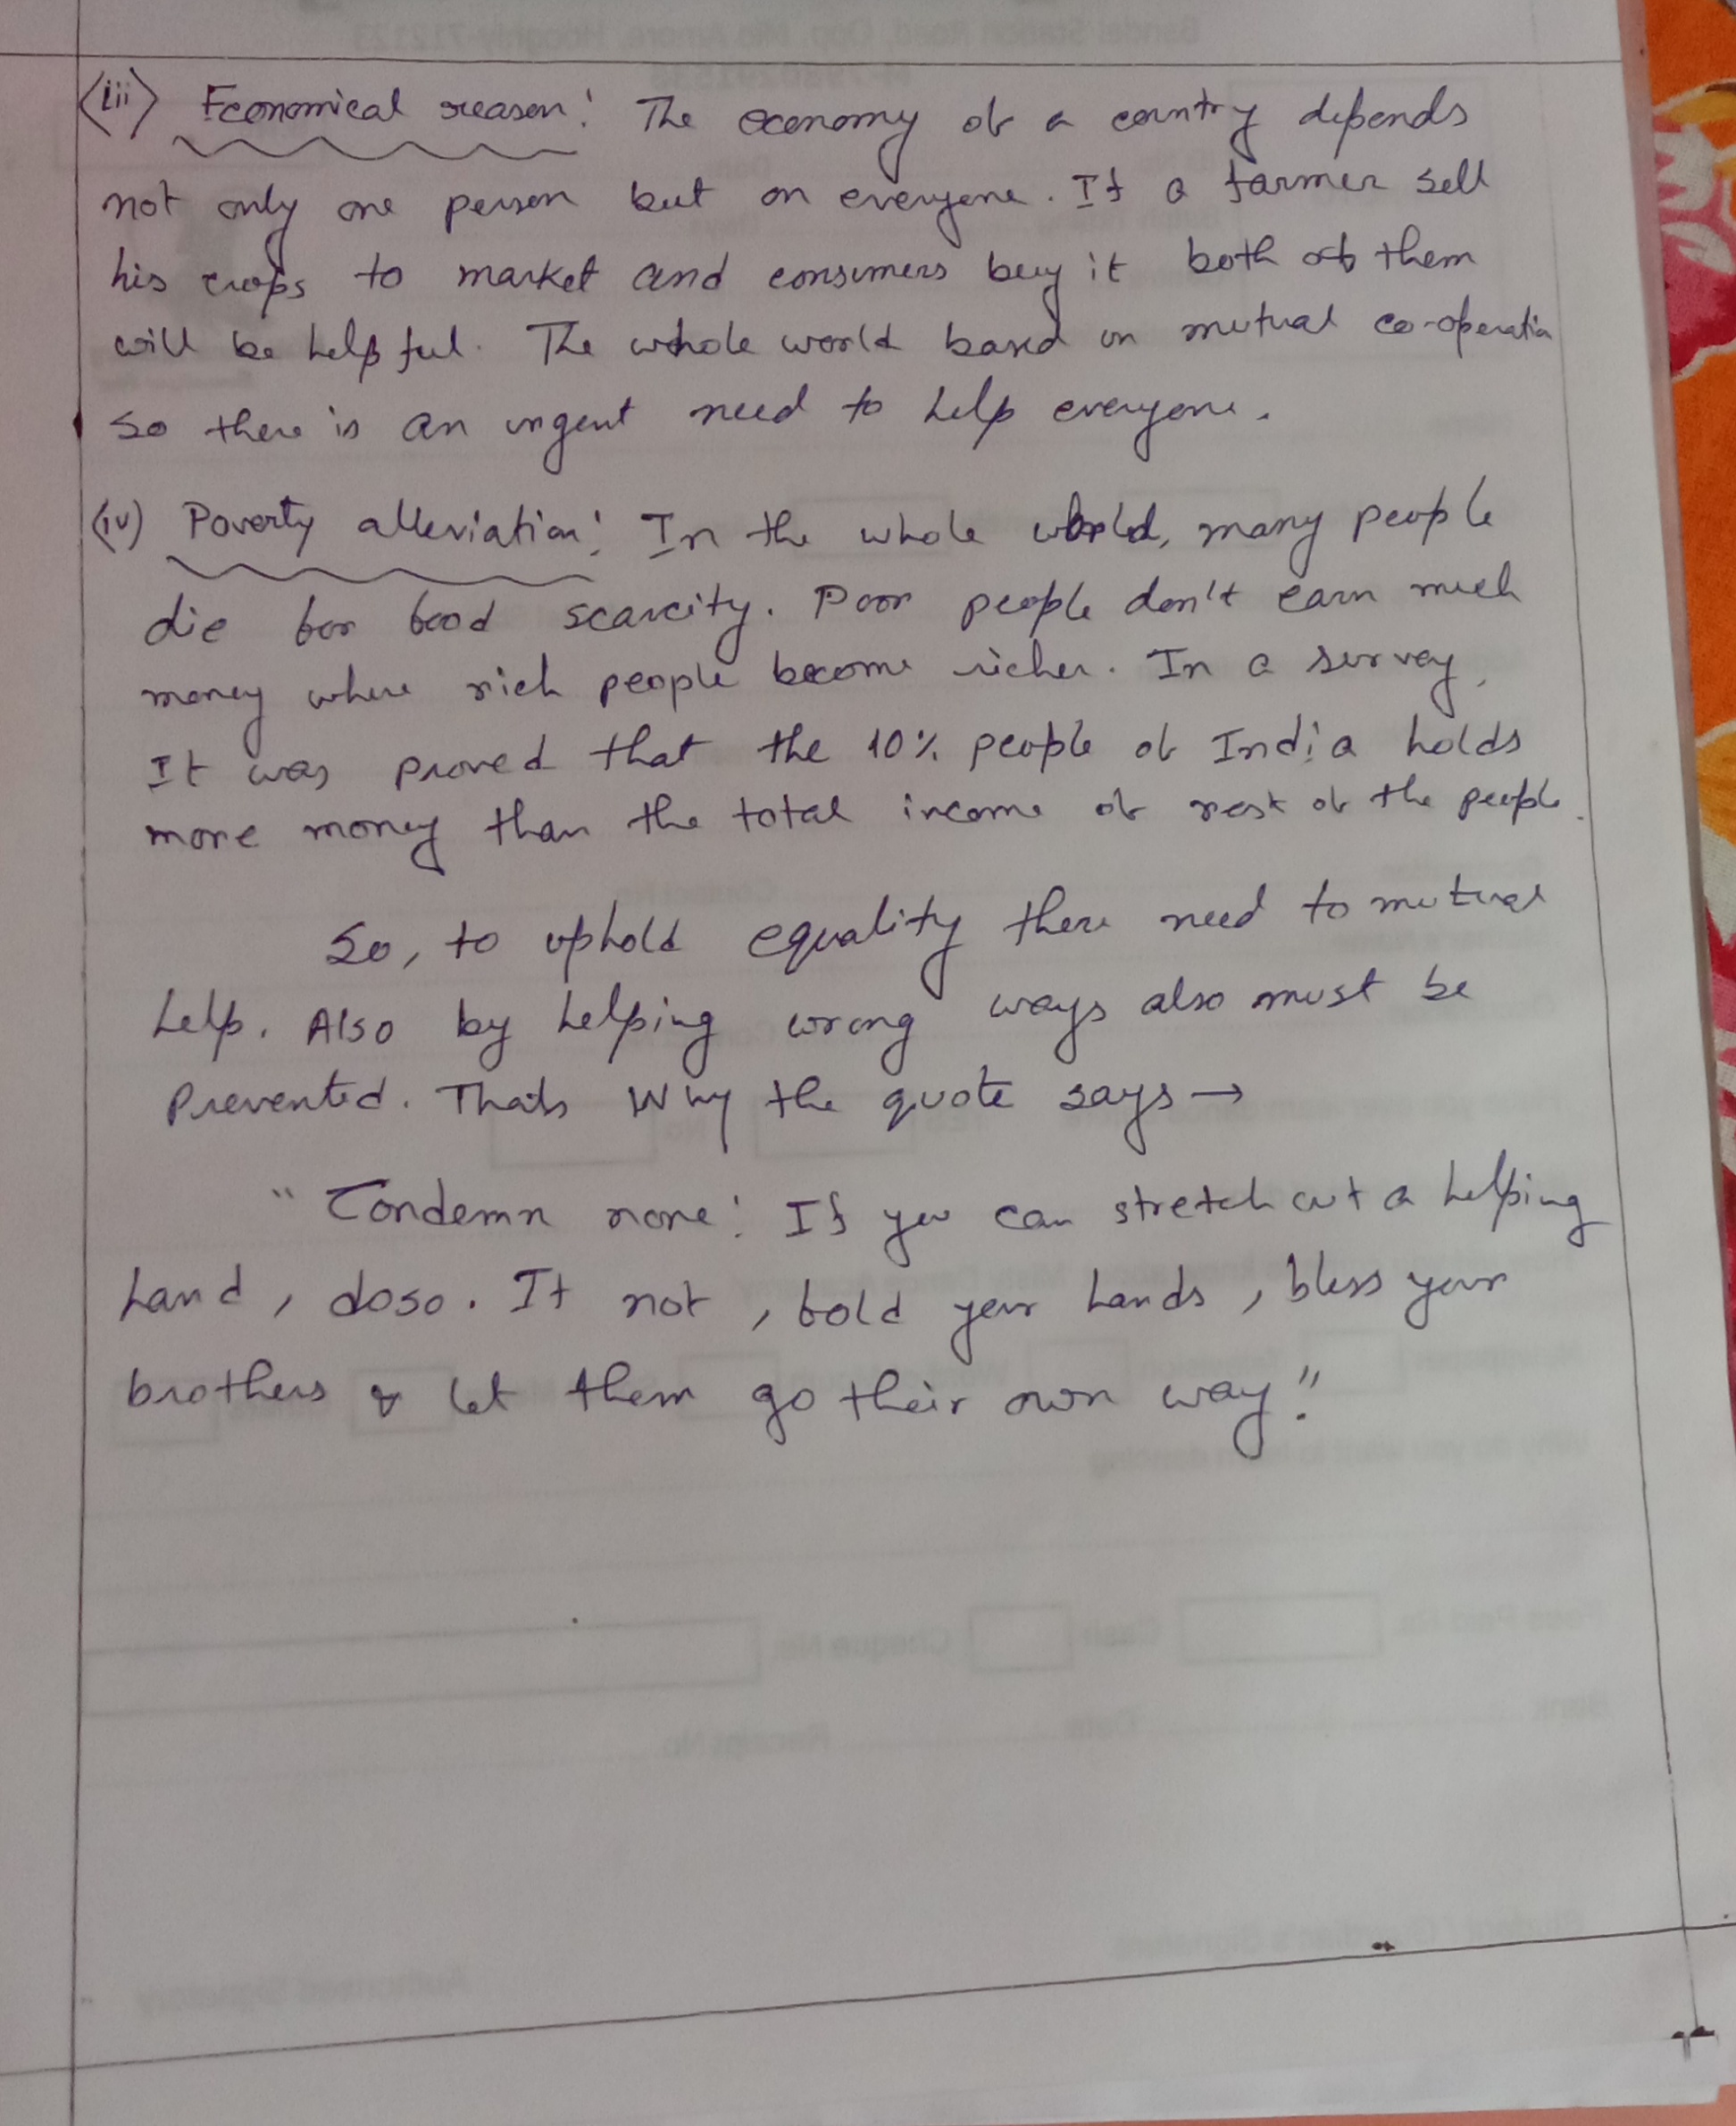 (iii) Economical reason: The economy of a country depends
not only one person but on everyone. If a farmer sell
his crops to market and consumers buy it both of them
will be helpful. The whole world based on mutual co-operatio
so there is an urgent need to help everyone.
(iv) Poverty alleviation: In the whole world, many people
die for food scarcity. Poor people don't earn much
money where rich people become richer. In a survey,
It was proved that the 10% people of India holds
more money than the total income of rest of the people.
So, to uphold equality there need to mutual
help. Also by helping wrong ways also must be
prevented. Thats Why the quote says →
"Condemn none: If you can stretch out a helping
hand, doso. If not, fold your hands, bless your
brothers & let them go their own way."